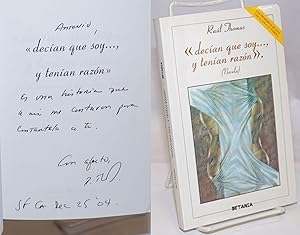 Antonio,
«decían que soy...,
y tenían razón»
Es una historia que
a mi me contaron para
contartela a ti.
Con afecto,
SF Ca Dec 25 '04.
Raúl Thomas
«decían que soy...,
y tenían razón».
(Novela)
BETANIA